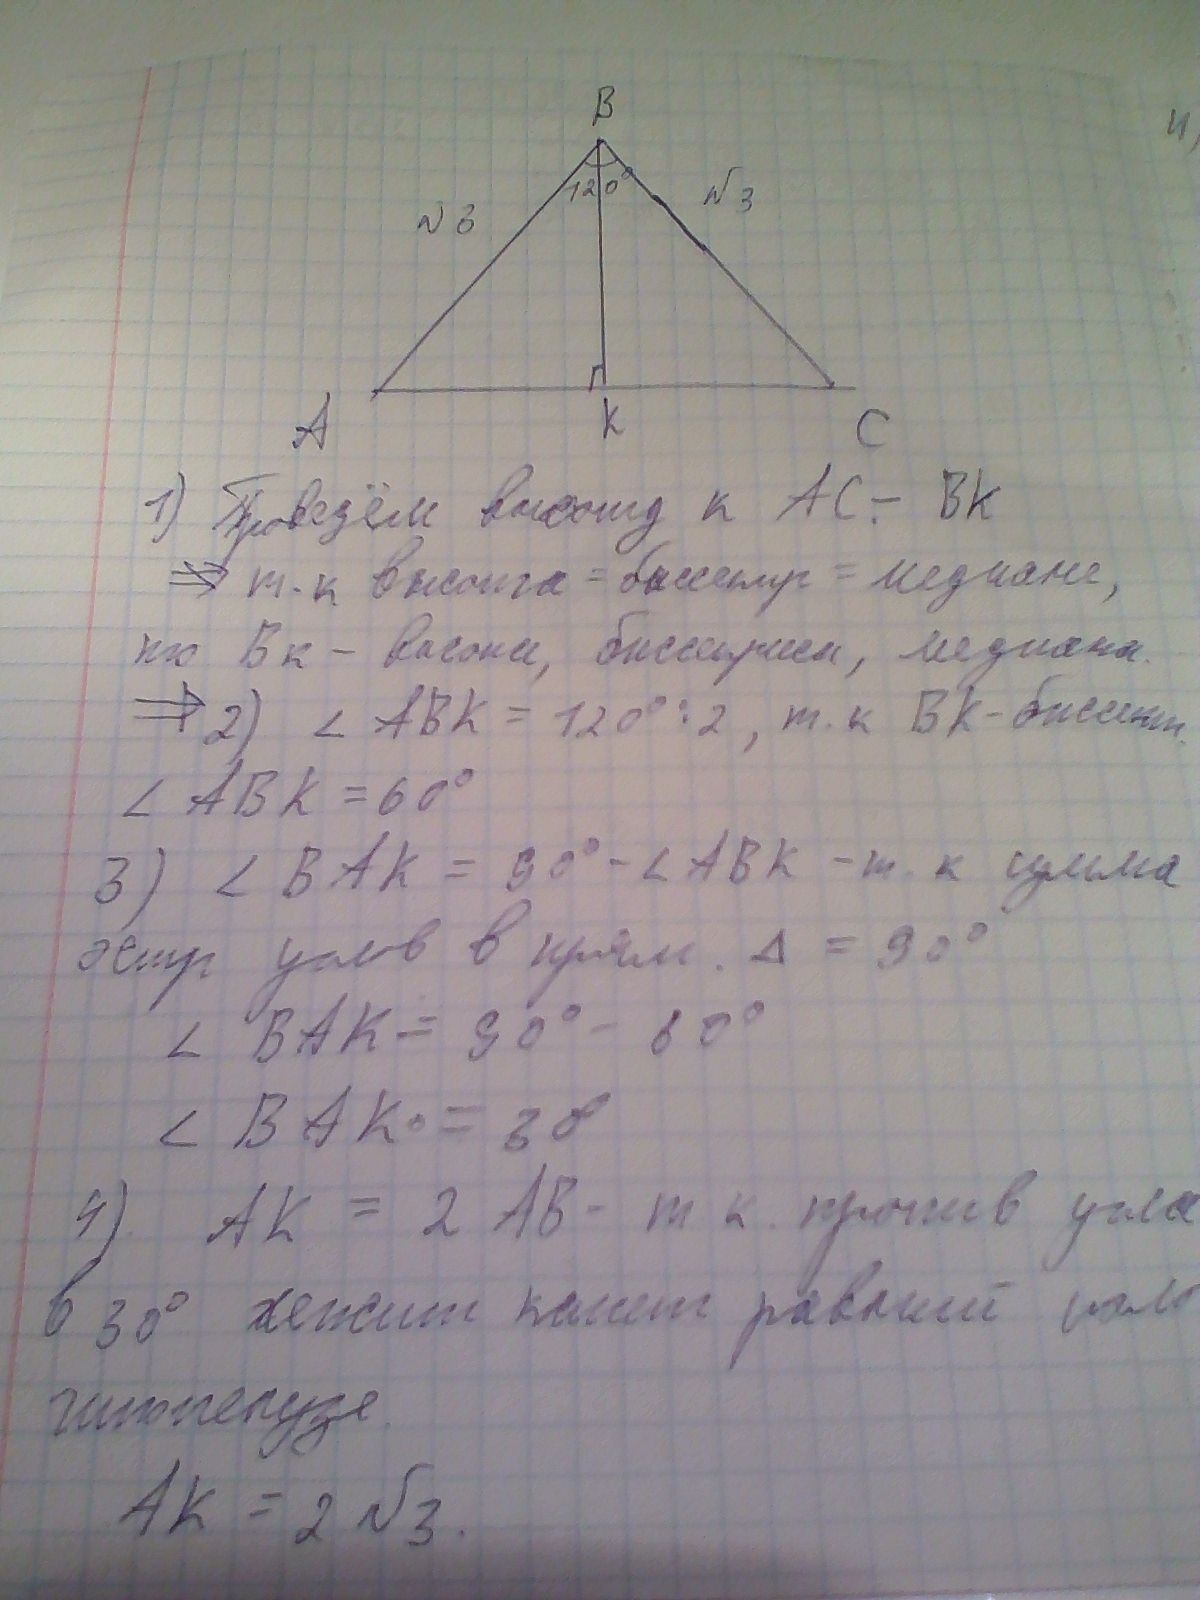 B
120°
√3
√3
A
K
C
1) Проведём высоту к AC - BK
⇒ т.к высота = биссектр = медиане,
то BK - высота, биссектриса, медиана.
⇒ 2) ∠ ABK = 120° : 2, т.к BK - биссект.
∠ ABK = 60°
3) ∠ BAK = 90° - ∠ ABK - т.к сумма
остр углов в прям. Δ = 90°
∠ BAK = 90° - 60°
∠ BAK = 30°
4) AK = 2 AB - т к. против угла
в 30° лежит катет равный
гипотенузе.
AK = 2 √3.